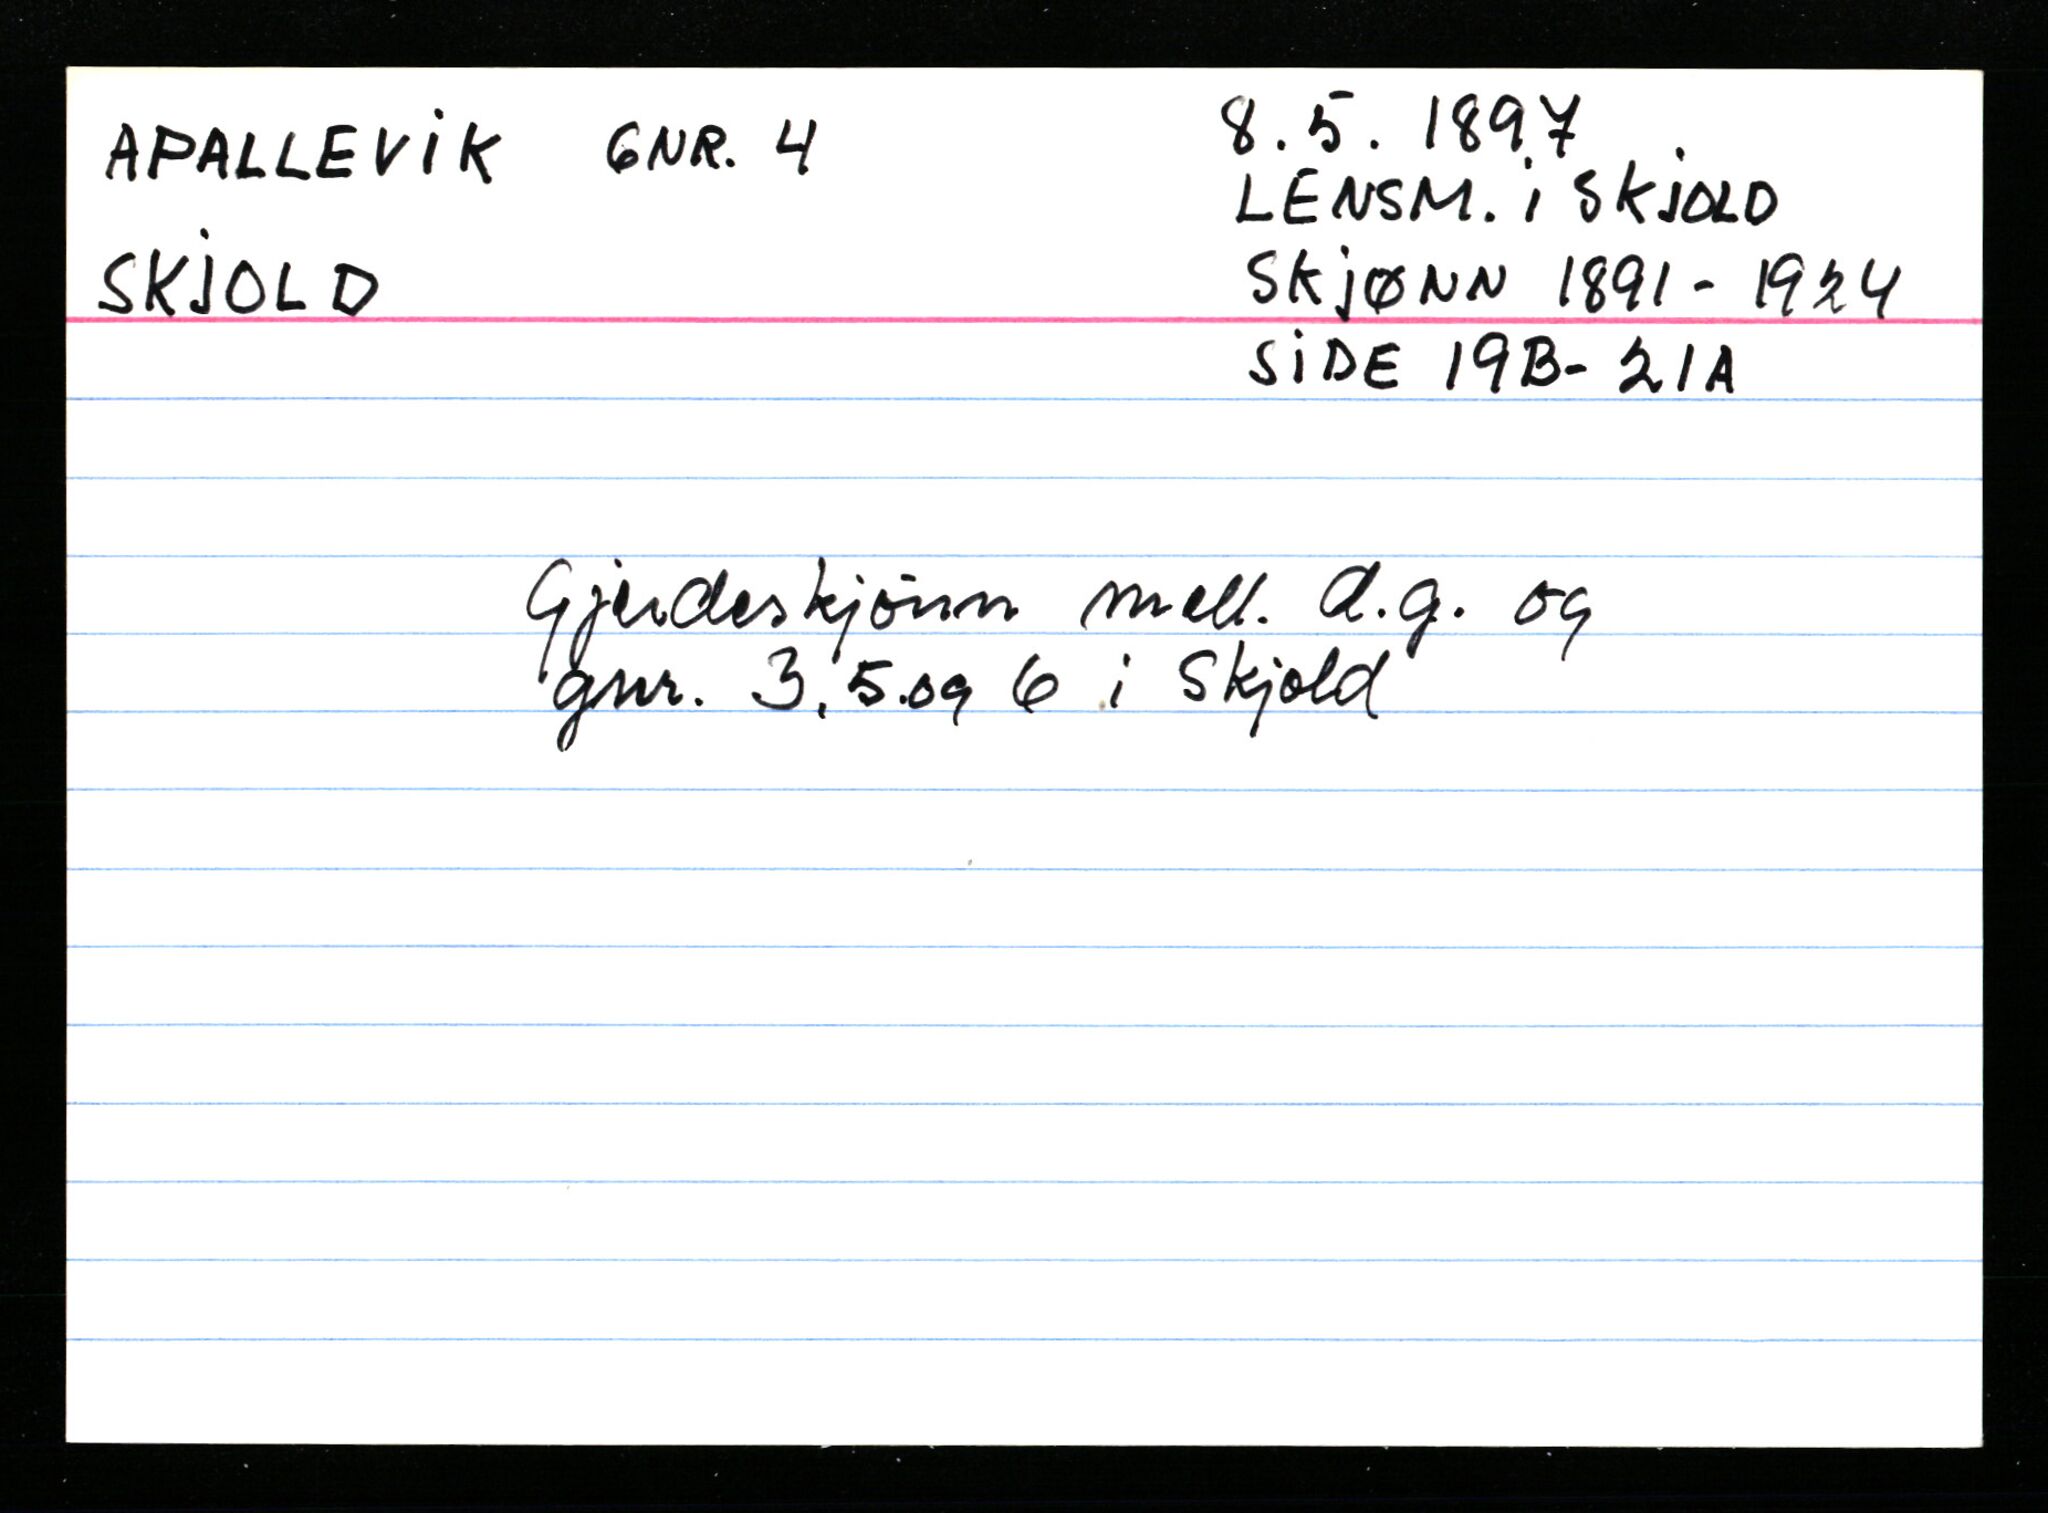 APALLEVIK GNR. 4
SKJOLD
8.5.1897
LENSM. i SKJOLD
SKJØNN 1891-1924
SIDE 19B-21A
Gjerdeskjönn mell. d.g. og
gnr. 3, 5.og 6 i Skjold